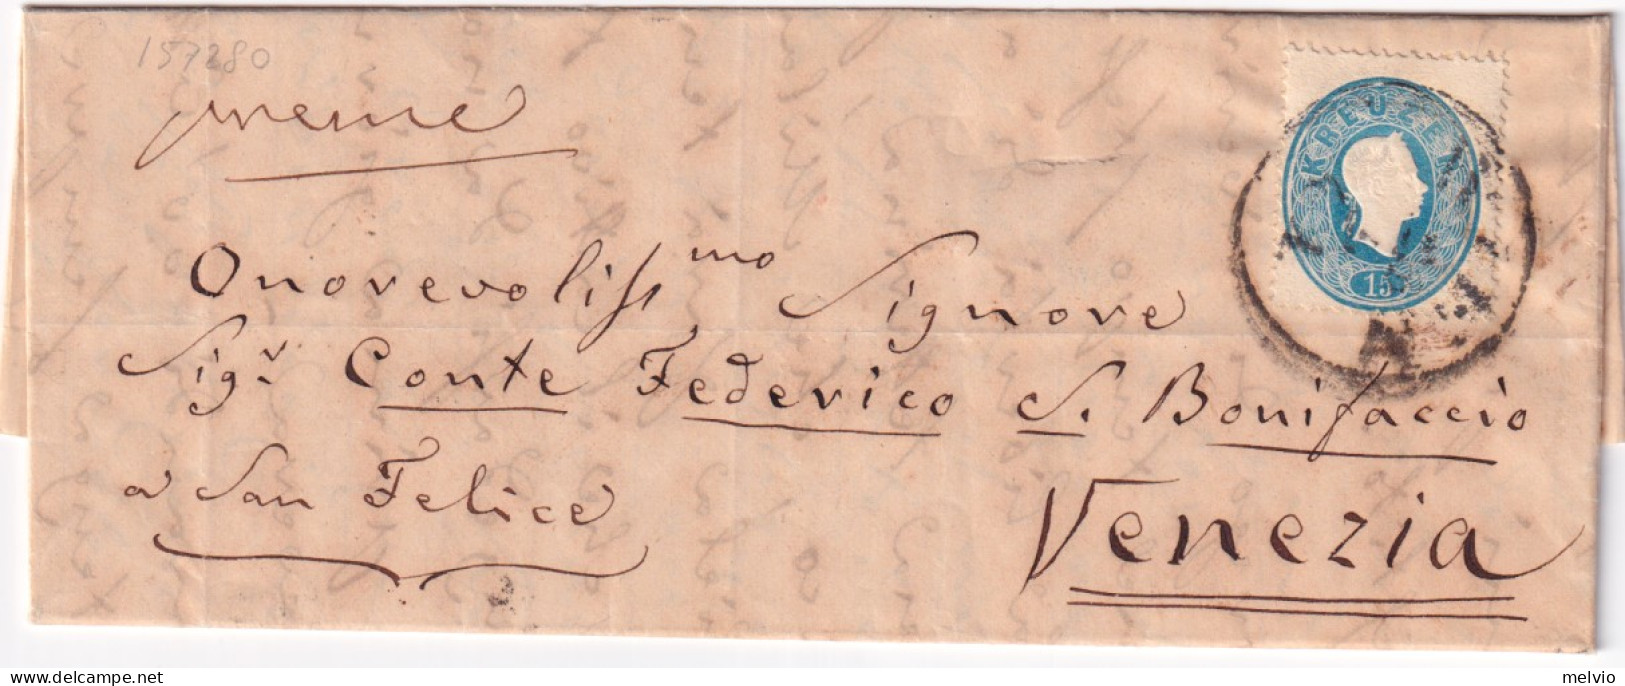 157280
KREUZER
15
Onorevoliss.mo Signore
Sigr. Conte Federico S. Bonifaccio
a San Felice
Venezia
melvio